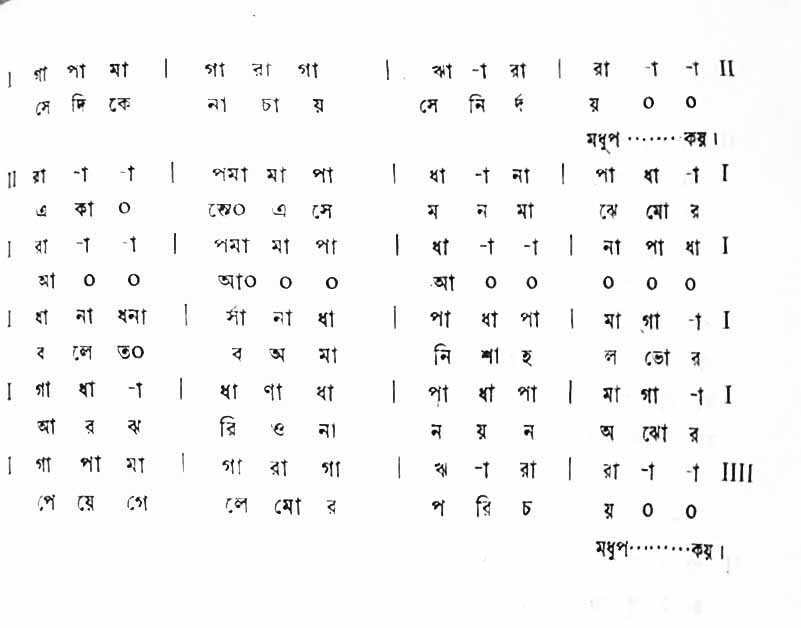 I গা পা মা | গা রা গা | ঋা -া রা | রা -া -া II
সে দি কে না চা য় সে নি র্দ য় ০ ০
মধুপ ······· কয়।
II রা -া -া | পমা মা পা | ধা -া না | পা ধা -া I
এ কা ০ স্তে০ এ সে ম ন মা ঝে মো র
I রা -া -া | পমা মা পা | ধা -া -া | না পা ধা I
আ ০ ০ আ০ ০ ০ আ ০ ০ ০ ০ ০
I ধা না ধনা | র্সা না ধা | পা ধা পা | মা গা -া I
ব লে ত০ ব অ মা নি শা হ ল ভো র
I গা ধা -া | ধা ণা ধা | পা ধা পা | মা গা -া I
আ র ঝ রি ও না ন য় ন অ ঝো র
I গা পা মা | গা রা গা | ঋ -া রা | রা -া -া IIII
পে য়ে গে লে মো র প রি চ য় ০ ০
মধুপ ········· কয়।